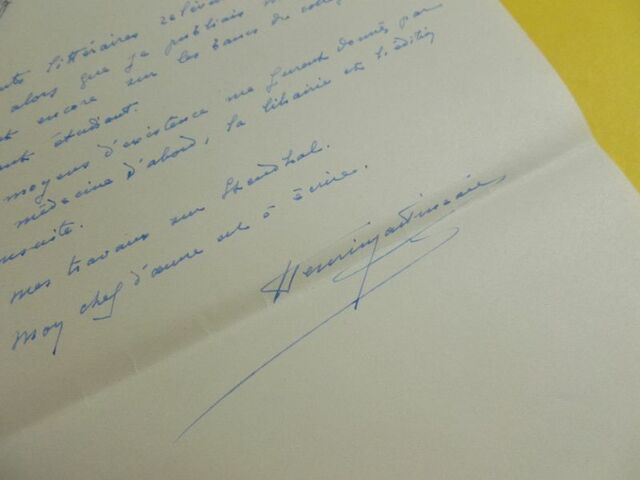 littéraires
alors que je publiais
encore sur les bancs de
étudiant.
moyens d'existence me furent donnés par
médecine d'abord, la librairie et l'édition
ensuite.
mes travaux sur Stendhal.
Mon chef d'œuvre est à écrire.
Henri Martineau